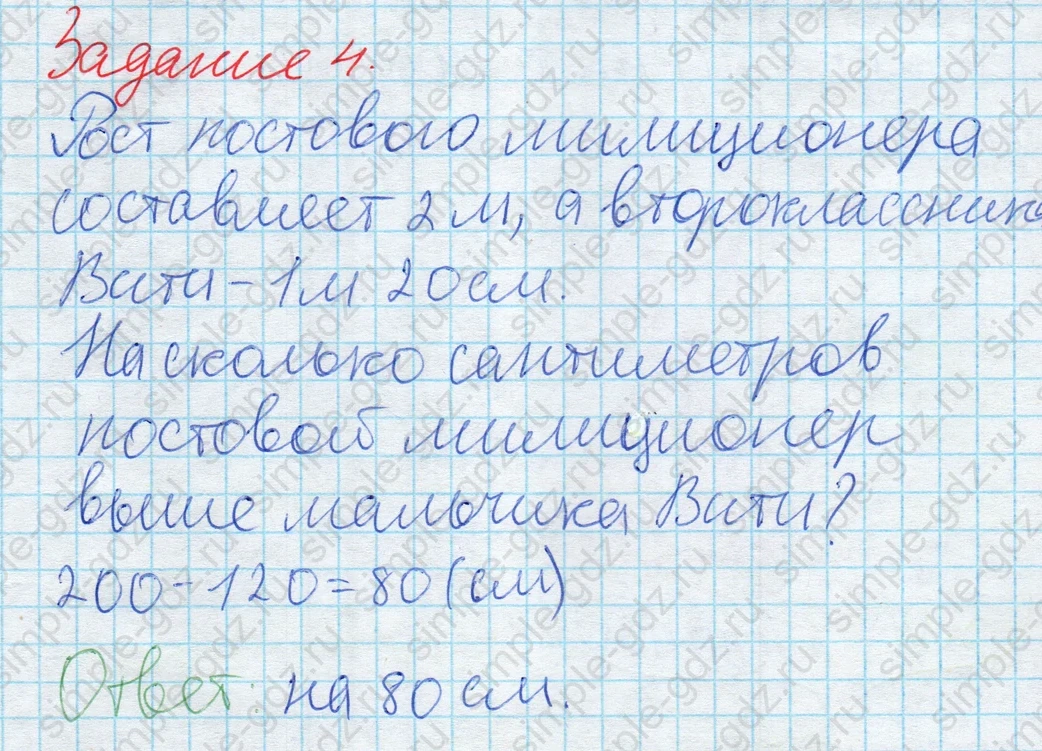 Задание 4.
Рост постового милиционера
составляет 2 м, а второклассника
Вити - 1 м 20 см.
На сколько сантиметров
постовой милиционер
выше мальчика Вити?
200 - 120 = 80 (см)
Ответ: на 80 см.
simple-gdz.ru